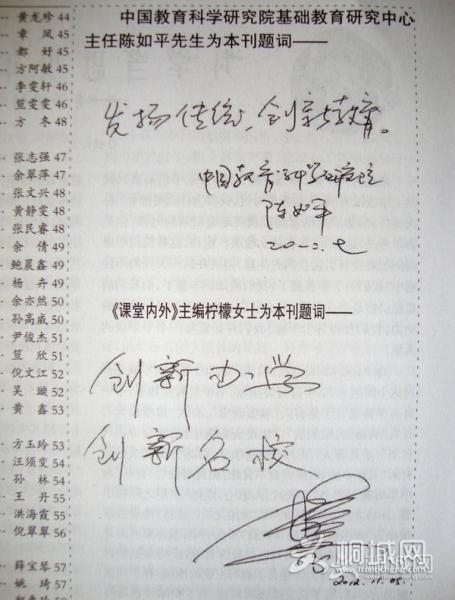 黄龙珍 44
章 凤 45
都 好 45
方阿敏 45
李雯轩 46
雯雯 46
方 冬 48
张志强 47
余翠萍 47
张文兴 48
黄静雯 48
张民睿 48
余 倩 49
鲍晨鑫 49
杨 卉 49
余亦然 50
孙高威 50
尹俊杰 51
欣 51
倪文江 52
吴 璇 52
黄 鑫 52
方玉玲 53
汪须雯 53
孙 林 54
王 丹 54
洪海霞 55
倪翠翠 56
薛宝琴 57
姚 琦 57
中国教育科学研究院基础教育研究中心
主任陈如平先生为本刊题词——
发扬传统，创新教育。
中国教育科学研究院
陈如平
《课堂内外》主编柠檬女士为本刊题词——
创新办学
创新名校
2012.11.05.
桐城网